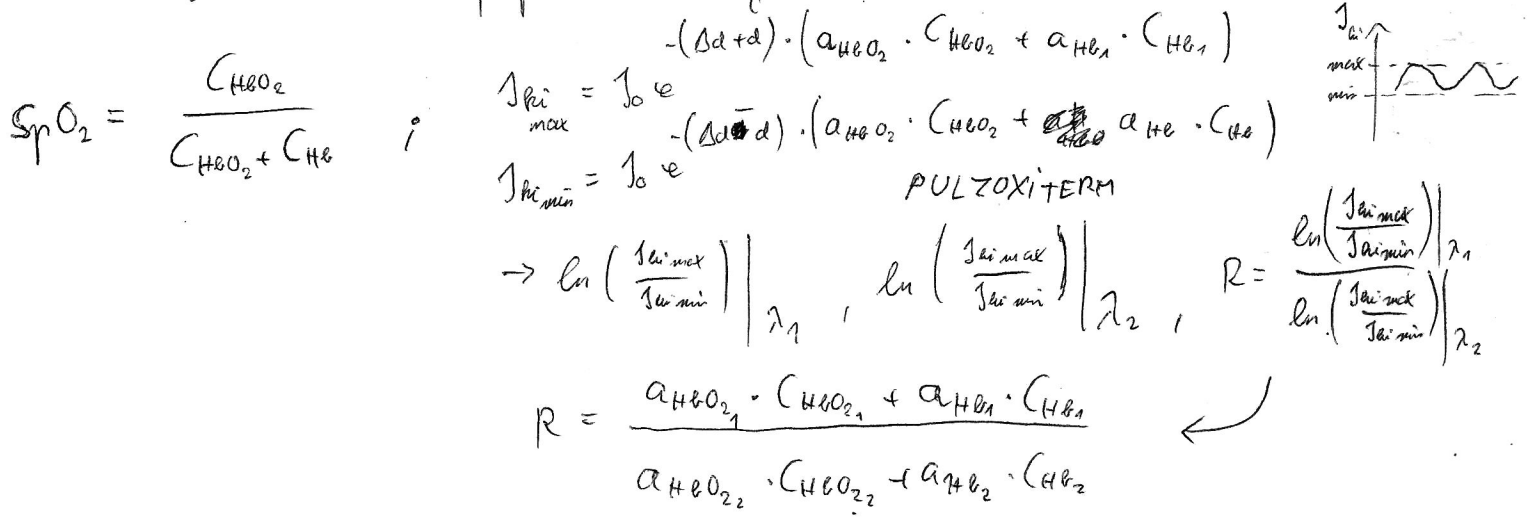 SpO₂ = C_HbO₂ / (C_HbO₂ + C_Hb) ;
J_ki max = J₀ e^(-(Δd+d)·(a_HbO₂ · C_HbO₂ + a_Hb₁ · C_Hb₁))
J_ki min = J₀ e^(·(a_HbO₂ · C_HbO₂ + a_Hb · C_Hb))
J_ki
max
min
PULZOXiTERM
→ ln (J_ki max / J_ki min)|λ₁ , ln (J_ki max / J_ki min)|λ₂ , R = ln(J_ki max / J_ki min)|λ₁ / ln(J_ki max / J_ki min)|λ₂
R = (a_HbO₂₁ · C_HbO₂₁ + a_Hb₁ · C_Hb₁) / (a_HbO₂₂ · C_HbO₂₂ + a_Hb₂ · C_Hb₂)